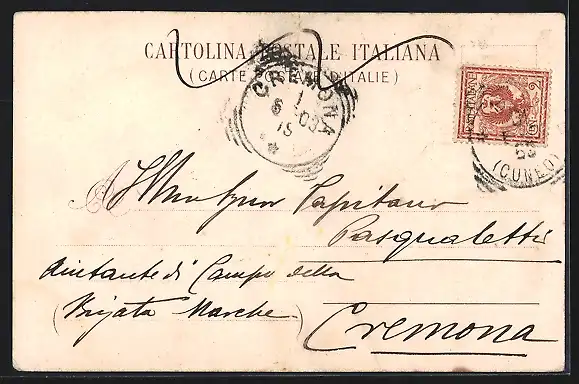 CARTOLINA POSTALE ITALIANA
(CARTE POSTALE D'ITALIE)
CREMONA
(CUNEO)
Capitano
Pasqualetti
Aiutante di Campo della
(Brigata Marche)
Cremona